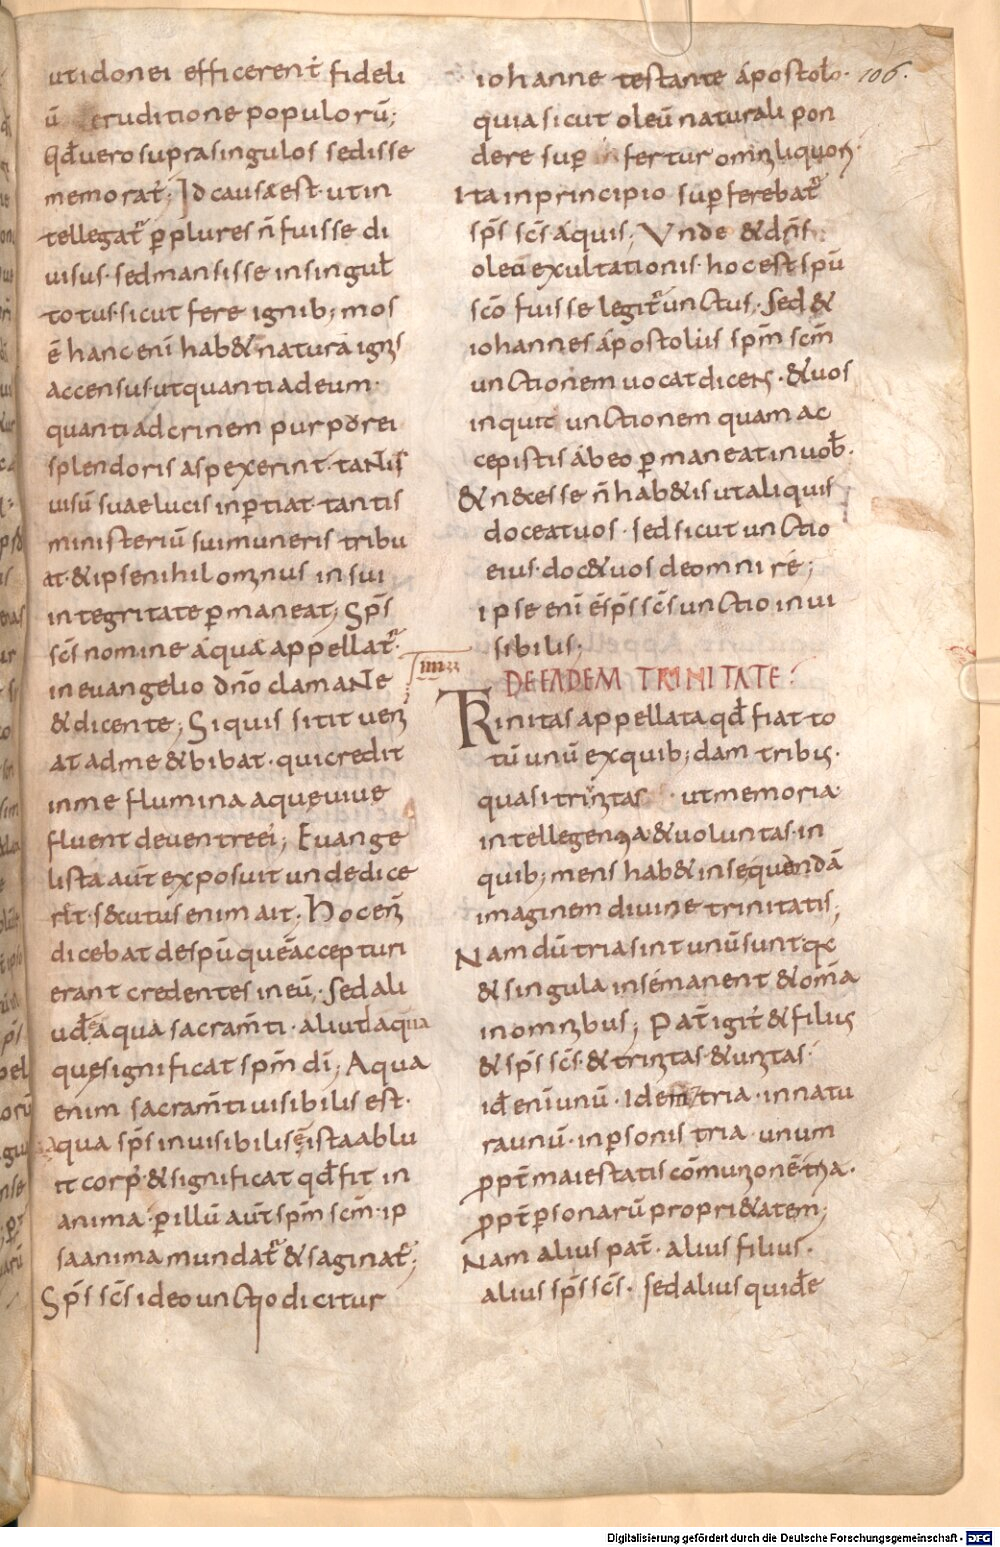 ut idonei efficerent̄ fideli
ū eruditione populorū;
Qd̄ vero supra singulos sedisse
memorat̄; Id causa est· ut in
tellegat᷑ p̱ plures n̄ fuisse di
uisus· sed mansisse in singul̄
totus· sicut fere ignib; mos
ē hanc enī hab& naturā ignis
accensus· ut quanti ad eum·
quanti ad crinem purporei
splendoris aspexerint· taNtis
uisū suae lucis inp̱tiat· tantis
ministeriū sui muneris tribu
at· & ipse nihilominus in sui
integritate p̱maneat; Sp̄s
sc̄s nomine aqua appellat᷑·
in euangelio dn̄o clamaNte
& dicente; Si quis sitit ueni
at ad me & bibat· qui credit
in me flumina aque uiue
fluent de uentre ei; Euange
lista aut̄ exposuit unde dice
r&· secutus enim ait; Hoc eni
dicebat de sp̄u quē accepturi
erant credentes in eū; Sed ali
ud ē aqua sacram̄ti· aliud aqua
que significat sp̄m dī; Aqua
enim sacram̄ti uisibilis est·
aqua sp̄s inuisibilis ē ista ablu
it corp᷒· & significat qd̄ fit in
anima· p̱ illū aut̄ sp̄m sc̄m· ip
sa anima mundat᷑ & saginat᷑;
Sp̄s sc̄s ideo unctio dicitur
106.
iohanne testante apostolo·
quia sicut oleū naturali pon
dere sup̱ fertur omni liquori·
Ita in principio sup̱ferebat᷑
sp̄s sc̄s aquis; Vnde & dn̄s
oleo exultationis· hoc est sp̄u
sc̄o fuisse legit᷑ unctus; Sed &
iohannes apostolus sp̄m sc̄m
unctionem uocat dicens· & uos
inquit unctionem quam ac
cepistis ab eo p̱maneat in uob̄·
& necesse n̄ hab&is ut aliquis
doceat uos· sed sicut unctio
eius· doc& uos de omni re;
ipse enī ē sp̄s sc̄s unctio inui
sibilis;
IIII
DE EADEM TRINITATE
Trinitas appellata qd̄ fiat to
tū unū ex quib; dam tribus·
quasi trinitas ut memoria
intellegentia & uoluntas· in
quib; mens hab& in se quendā
imaginem diuine trinitatis;
Nam dū tria sint unū sunt quia
& singula in se manent & om̄a
in omnibus; Pat̄ igit᷑ & filius
& sp̄s sc̄s· & trinitas· & unitas·
id enī unū· Idem tria· in natu
ra unū· in p̱sonis tria· unum
ppt̄ maiestatis cōmunionē tria·
ppt̄ p̱sonarū propri&atem;
Nam alius pat̄· alius filius·
alius sp̄s sc̄s· sed alius quidē
Digitalisierung gefördert durch die Deutsche Forschungsgemeinschaft - DFG